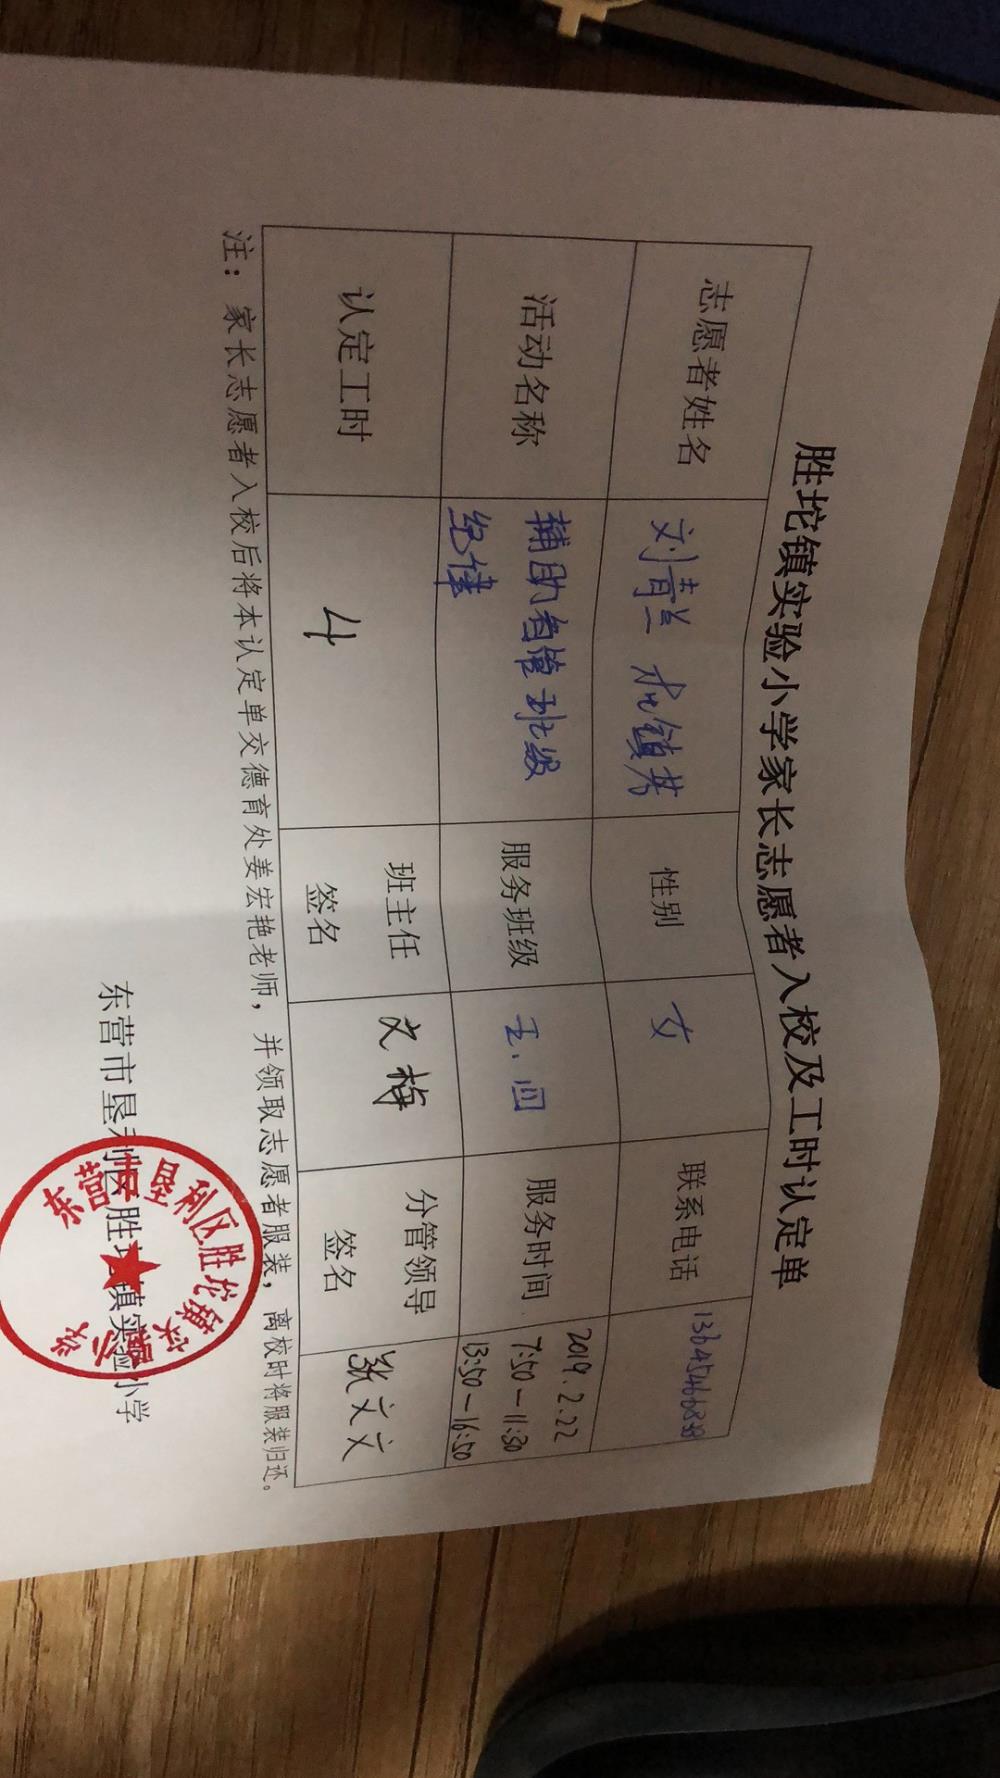 胜坨镇实验小学家长志愿者入校及工时认定单
志愿者姓名 刘青兰 性别 女 联系电话
活动名称 辅助自管班级纪律 服务班级 五.四 服务时间 2019.2.22
7:50—11:30
13:50—16:50
认定工时 4 班主任签名 文梅 分管领导签名 张文文
注：家长志愿者入校后将本认定单交德育处姜宏艳老师，并领取志愿者服装，离校时将服装归还。
东营市垦利区胜坨镇实验小学
东营市垦利区胜坨镇实验小学